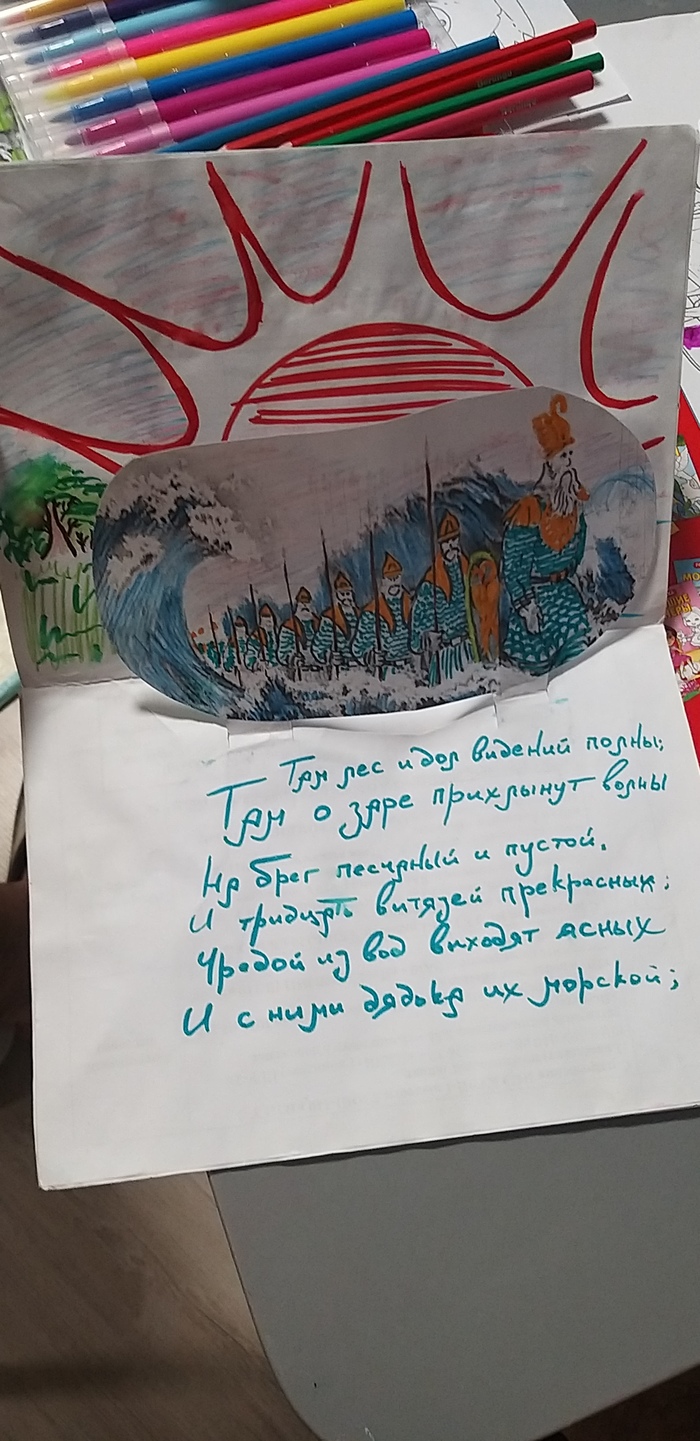 Там лес и дол видений полны;
Там о заре прихлынут волны
На брег песчаный и пустой.
И тридцать витязей прекрасных;
Чредой из вод виходят ясных
И с ними дядька их морской;